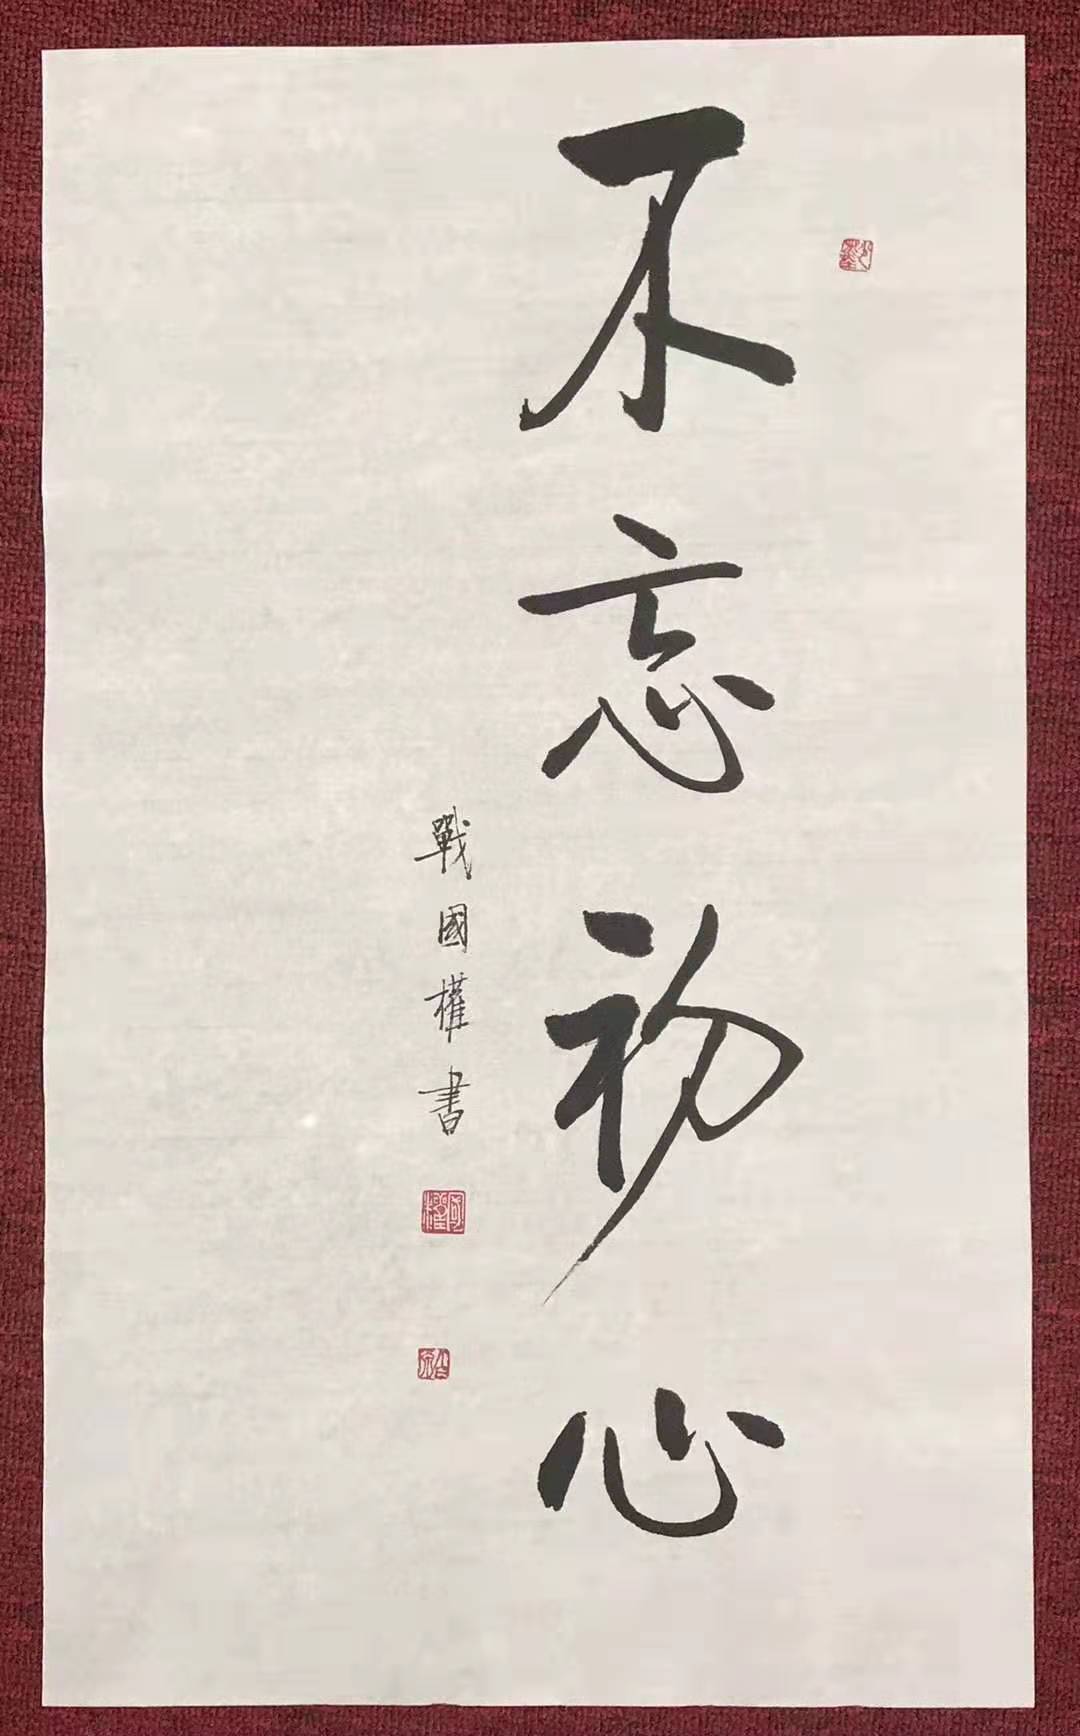 不忘初心
戰國權書